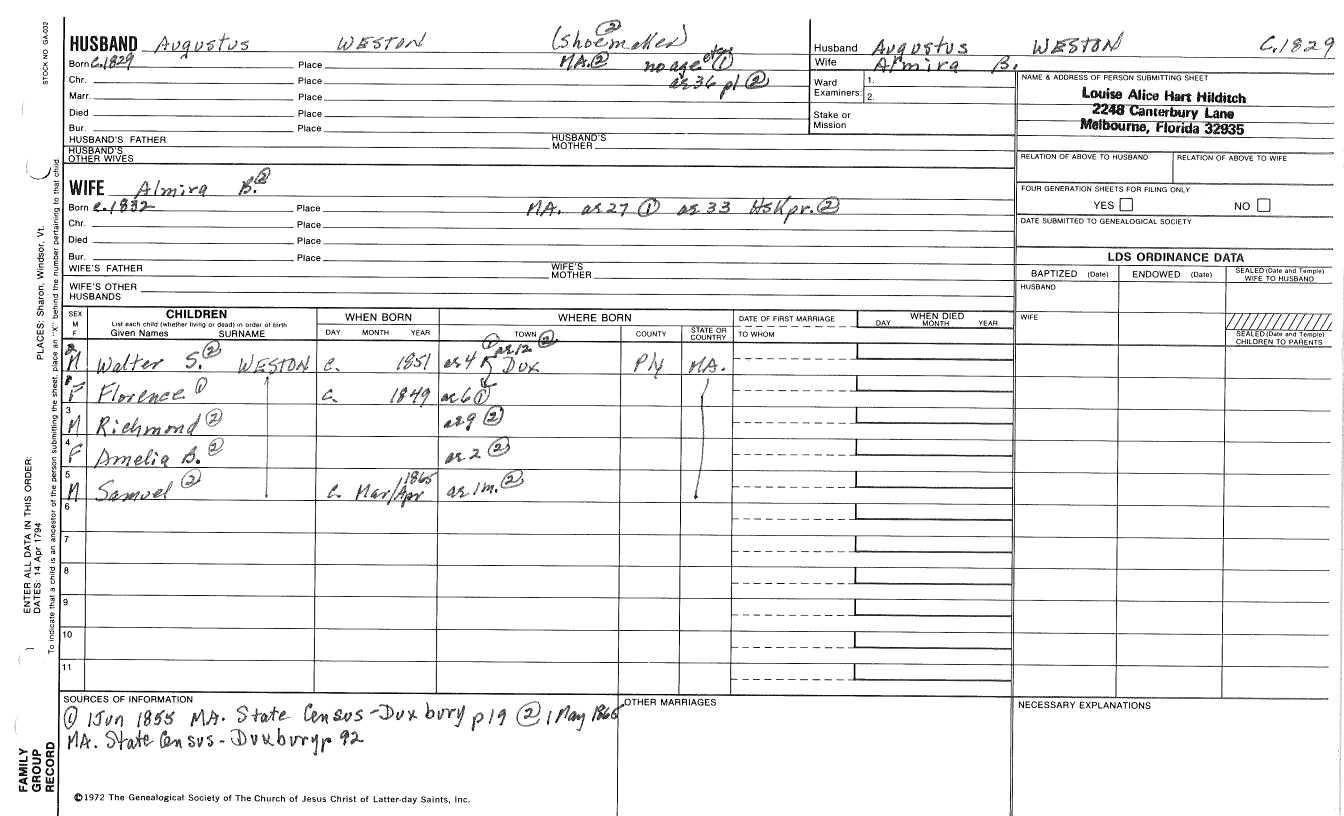 STOCK NO. GA-032
HUSBAND Augustus WESTON (shoemaker) ②
Born c.1829 Place MA.② no age ①
Chr. Place ae 36 p1 ②
Marr. Place
Died Place
Bur. Place
HUSBAND'S FATHER HUSBAND'S MOTHER
HUSBAND'S OTHER WIVES
Husband Augustus WESTON C.1829
Wife Almira B.
Ward Examiners: 1. 2.
Stake or Mission
NAME & ADDRESS OF PERSON SUBMITTING SHEET
Louise Alice Hart Hilditch
2248 Canterbury Lane
Melbourne, Florida 32935
RELATION OF ABOVE TO HUSBAND RELATION OF ABOVE TO WIFE
FOUR GENERATION SHEETS FOR FILING ONLY
YES NO
DATE SUBMITTED TO GENEALOGICAL SOCIETY
WIFE Almira B.②
Born c.1832 Place MA. ae 27 ① ae 33 HSKpr. ②
Chr. Place
Died Place
Bur. Place
WIFE'S FATHER WIFE'S MOTHER
WIFE'S OTHER HUSBANDS
LDS ORDINANCE DATA
BAPTIZED (Date) ENDOWED (Date) SEALED (Date and Temple) WIFE TO HUSBAND
HUSBAND
WIFE
SEALED (Date and Temple) CHILDREN TO PARENTS
SEX M F CHILDREN WHEN BORN WHERE BORN DATE OF FIRST MARRIAGE WHEN DIED
List each child (whether living or dead) in order of birth
Given Names SURNAME DAY MONTH YEAR TOWN COUNTY STATE OR COUNTRY TO WHOM DAY MONTH YEAR
M Walter S.② WESTON c. 1851 ae 4 ① ae 12 ② Dux Ply MA.
F Florence ① c. 1849 ae 6 ①
3 M Richmond ② ae 9 ②
4 F Amelia B. ② ae 2 ②
5 M Samuel ② c. Mar/Apr 1865 ae 1m. ②
6
7
8
9
10
11
SOURCES OF INFORMATION
① 1 Jun 1855 MA. State Census-Duxbury p19 ② 1 May 1865
MA. State Census-Duxbury p 92
OTHER MARRIAGES
NECESSARY EXPLANATIONS
©1972 The Genealogical Society of The Church of Jesus Christ of Latter-day Saints, Inc.
FAMILY GROUP RECORD
ENTER ALL DATA IN THIS ORDER:
DATES: 14 Apr 1794
PLACES: Sharon, Windsor, Vt.
To indicate that a child is an ancestor of the person submitting the sheet, place an "X" behind the number pertaining to that child